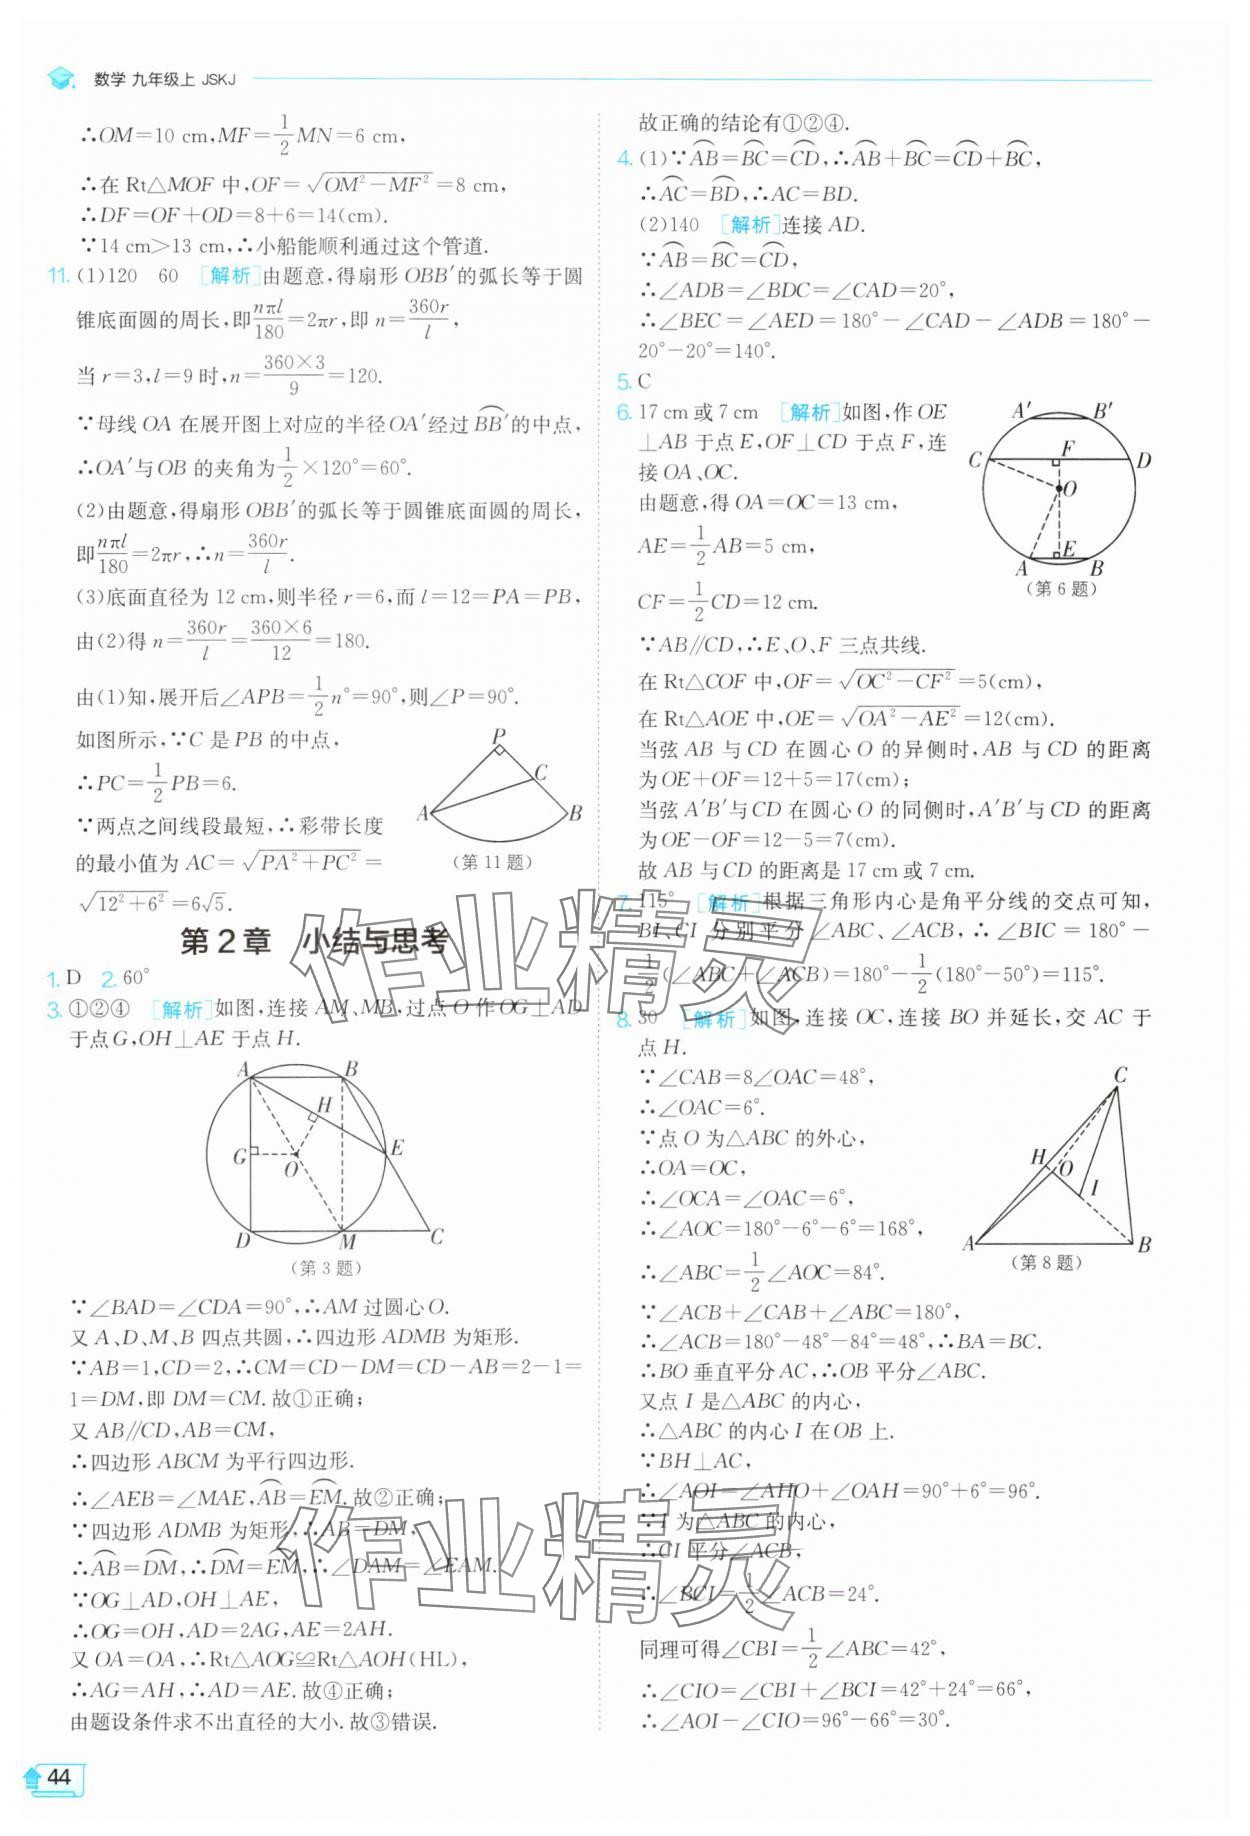 数学 九年级上 JSKJ
∴OM=10 cm,MF=1/2 MN=6 cm,
∴在 Rt△MOF 中,OF=√(OM²-MF²)=8 cm,
∴DF=OF+OD=8+6=14(cm).
∵14 cm>13 cm,∴小船能顺利通过这个管道.
11. (1)120 60 [解析]由题意,得扇形 OBB′的弧长等于圆
锥底面圆的周长,即nπl/180=2πr,即 n=360r/l,
当 r=3,l=9 时,n=360×3/9=120.
∵母线 OA 在展开图上对应的半径OA′经过⌒BB′的中点,
∴OA′与OB 的夹角为1/2×120°=60°.
(2)由题意,得扇形 OBB′的弧长等于圆锥底面圆的周长,
即nπl/180=2πr,∴n=360r/l.
(3)底面直径为 12 cm,则半径 r=6,而 l=12=PA=PB,
由(2)得 n=360r/l=360×6/12=180.
由(1)知,展开后∠APB=1/2 n°=90°,则∠P=90°.
如图所示,∵C 是 PB 的中点,
∴PC=1/2 PB=6.
∵两点之间线段最短,∴彩带长度
的最小值为 AC=√(PA²+PC²)=
√(12²+6²)=6√5.
P
C
A
B
(第 11 题)
第 2 章 小结与思考
1. D 2. 60°
3. ①②④ [解析]如图,连接 AM、MB,过点 O 作OG⊥AD
于点G,OH⊥AE 于点 H.
A
B
H
G
O
E
D
M
C
(第 3 题)
∵∠BAD=∠CDA=90°,∴AM 过圆心O.
又 A、D、M、B 四点共圆,∴四边形 ADMB 为矩形.
∵AB=1,CD=2,∴CM=CD-DM=CD-AB=2-1=
1=DM,即 DM=CM.故①正确;
又 AB//CD,AB=CM,
∴四边形 ABCM 为平行四边形.
∴∠AEB=∠MAE,⌒AB=⌒EM.故②正确;
∵四边形 ADMB 为矩形,∴AB=DM,
∴⌒AB=⌒DM,∴⌒DM=⌒EM,∴∠DAM=∠EAM.
∵OG⊥AD,OH⊥AE,
∴OG=OH,AD=2AG,AE=2AH.
又 OA=OA,∴Rt△AOG≌Rt△AOH(HL),
∴AG=AH,∴AD=AE.故④正确;
由题设条件求不出直径的大小.故③错误.
44
故正确的结论有①②④.
4. (1)∵⌒AB=⌒BC=⌒CD,∴⌒AB+⌒BC=⌒CD+⌒BC,
∴⌒AC=⌒BD,∴AC=BD.
(2)140 [解析]连接 AD.
∵⌒AB=⌒BC=⌒CD,
∴∠ADB=∠BDC=∠CAD=20°,
∴∠BEC=∠AED=180°-∠CAD-∠ADB=180°-
20°-20°=140°.
5. C
6. 17 cm 或 7 cm [解析]如图,作 OE
⊥AB 于点 E,OF⊥CD 于点 F,连
接 OA、OC.
由题意,得 OA=OC=13 cm,
AE=1/2 AB=5 cm,
CF=1/2 CD=12 cm.
∵AB//CD,∴E、O、F 三点共线.
A′
B′
C
F
D
O
E
A
B
(第 6 题)
在 Rt△COF 中,OF=√(OC²-CF²)=5(cm),
在 Rt△AOE 中,OE=√(OA²-AE²)=12(cm).
当弦 AB 与 CD 在圆心 O 的异侧时,AB 与 CD 的距离
为OE+OF=12+5=17(cm);
当弦 A′B′与 CD 在圆心 O 的同侧时,A′B′与 CD 的距离
为OE-OF=12-5=7(cm).
故 AB 与 CD 的距离是 17 cm 或 7 cm.
7. 115° [解析]根据三角形内心是角平分线的交点可知,
BI、CI 分别平分∠ABC、∠ACB,∴∠BIC=180°-
1/2(∠ABC+∠ACB)=180°-1/2(180°-50°)=115°.
8. 30 [解析]如图,连接 OC,连接 BO 并延长,交 AC 于
点 H.
∵∠CAB=8∠OAC=48°,
∴∠OAC=6°.
∵点 O 为△ABC 的外心,
∴OA=OC,
∴∠OCA=∠OAC=6°,
∴∠AOC=180°-6°-6°=168°,
∴∠ABC=1/2∠AOC=84°.
C
H
O
I
A
B
(第 8 题)
∵∠ACB+∠CAB+∠ABC=180°,
∴∠ACB=180°-48°-84°=48°,∴BA=BC.
∴BO 垂直平分 AC,∴OB 平分∠ABC.
又点 I 是△ABC 的内心,
∴△ABC 的内心 I 在 OB 上.
∵BH⊥AC,
∴∠AOI=∠AHO+∠OAH=90°+6°=96°.
∵I 为△ABC 的内心,
∴CI 平分∠ACB,
∴∠BCI=1/2∠ACB=24°.
同理可得∠CBI=1/2∠ABC=42°,
∴∠CIO=∠CBI+∠BCI=42°+24°=66°,
∴∠AOI-∠CIO=96°-66°=30°.
作业精灵
作业精灵